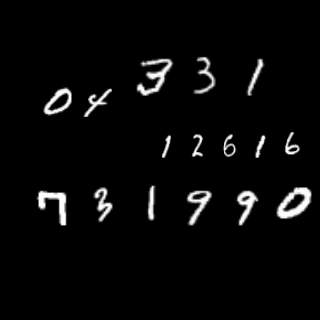 04
331
12616
731990